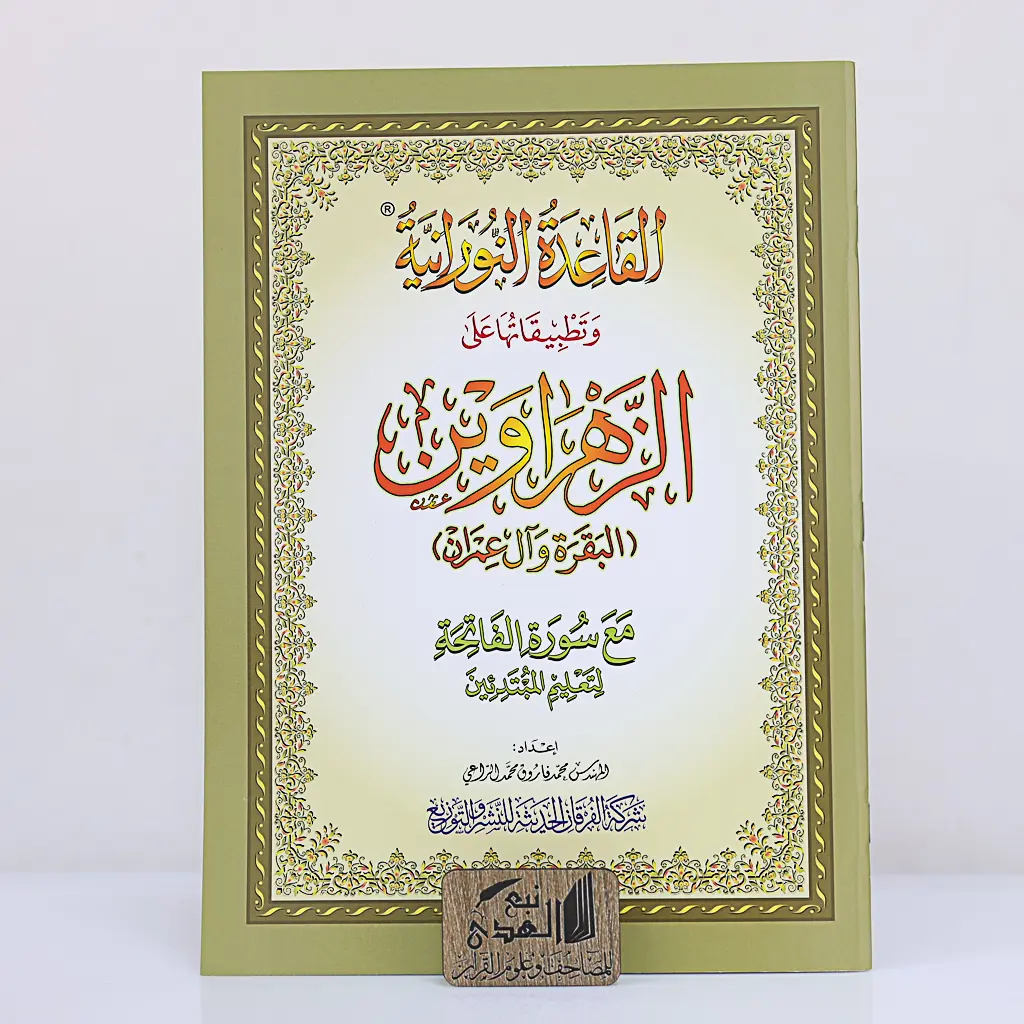 القَاعِدَةُ النُّورَانِيَّةُ ®
وَتَطْبِيقَاتُهَا عَلَى
الزَّهْرَاوَيْنِ
(البَقَرَة وَآل عِمْرَان)
مَعَ سُورَةِ الفَاتِحَةِ
لِتَعْلِيمِ المُبْتَدِئِينَ
إعْدَاد:
المهندس محمد فاروق محمد الراعي
شركة الفرقان الحديثة للنشر والتوزيع
نبع
الهدى
للمصاحف وعلوم القرآن